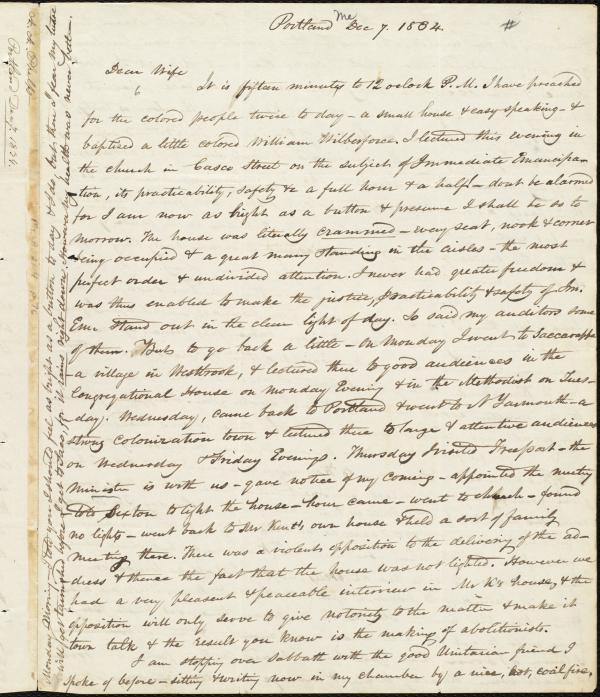 Portland Me Dec 7. 1834.
Dear Wife
It is fifteen minutes to 12 oclock P.M. I have preached
for the colored people twice to day - a small house & easy speaking - &
baptised a little colored William Wilberforce. I lectured this evening in
the church in Casco Street on the subject of Immediate Emancipa-
tion, its practicability, safety &c a full hour & a half - dont be alarmed
for I am now as bright as a button & presume I shall be so to
morrow. The house was literally crammed - every seat, nook & corner
being occupied & a great many standing in the aisles - the most
perfect order & undivided attention. I never had greater freedom &
was thus enabled to make the justice, practicability & safety of Im.
Em. stand out in the clear light of day. So said my auditors some
of them. But to go back a little - On Monday I went to Saccarappa
- a village in Westbrook, & lectured there to good audiences in the
Congregational House on Monday Evening & in the Methodist on Tues-
day. Wednesday, came back to Portland & went to N Yarmouth - a
strong Colonization town & lectured there to large & attentive audiences
on Wednesday & Friday Evenings. Thursday I visited Freeport - the
Minister is with us - gave notice of my coming - appointed the meeting
told Sexton to light the house - hour came - went to church - found
no lights - went back to Mr Kent's own house & held a sort of family
meeting there. There was a violent opposition to the delivery of the ad-
dress & thence the fact that the house was not lighted. However we
had a very pleasant & peaceable interview in Mr K's house, & the
opposition will only serve to give notoriety to the matter & make it
town talk & the result you know is the making of abolitionists.
I am stopping over Sabbath with the good Unitarian friend I
spoke of before - sitting & writing now in my chamber by a nice, hot, coal fire,
Monday Morning. I told you I should feel as bright as a button to day & I do, but then I fear my letter
will get damaged before it gets to
for it
right down. However my health was never better.